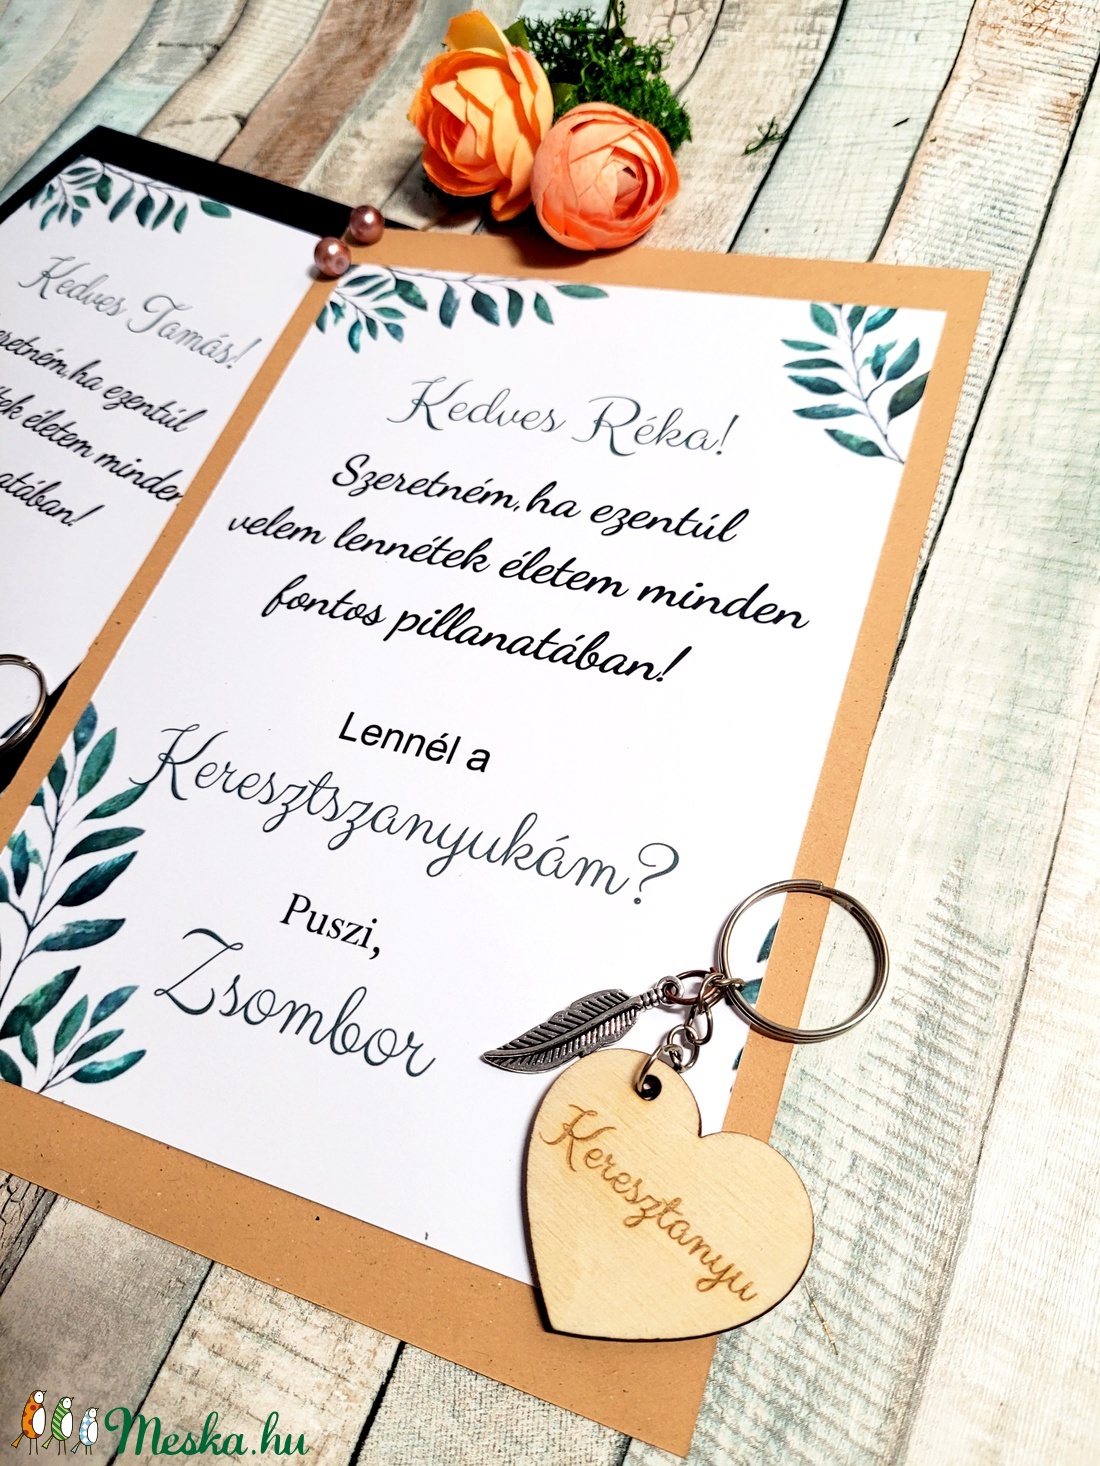 Kedves Tamás!
ha ezentúl
életem minden
Kedves Réka!
Szeretném,ha ezentúl
velem lennétek életem minden
fontos pillanatában!
Lennél a
Keresztszanyukám?
Puszi,
Zsombor
Keresztanyu
Meska.hu